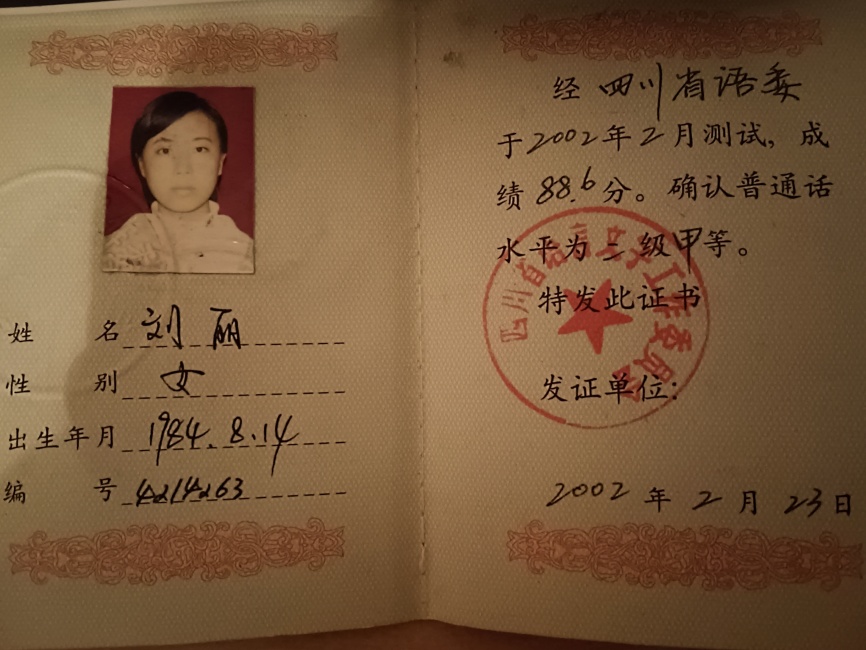 姓 名 刘丽
性 别 女
出生年月 1984.8.14
编 号 4214263
经 四川省语委
于2002年2月测试，成
绩 88.6 分。确认普通话
水平为二级甲等。
特发此证书
发证单位：
四川省语言文字工作委员会
2002 年 2 月 23 日